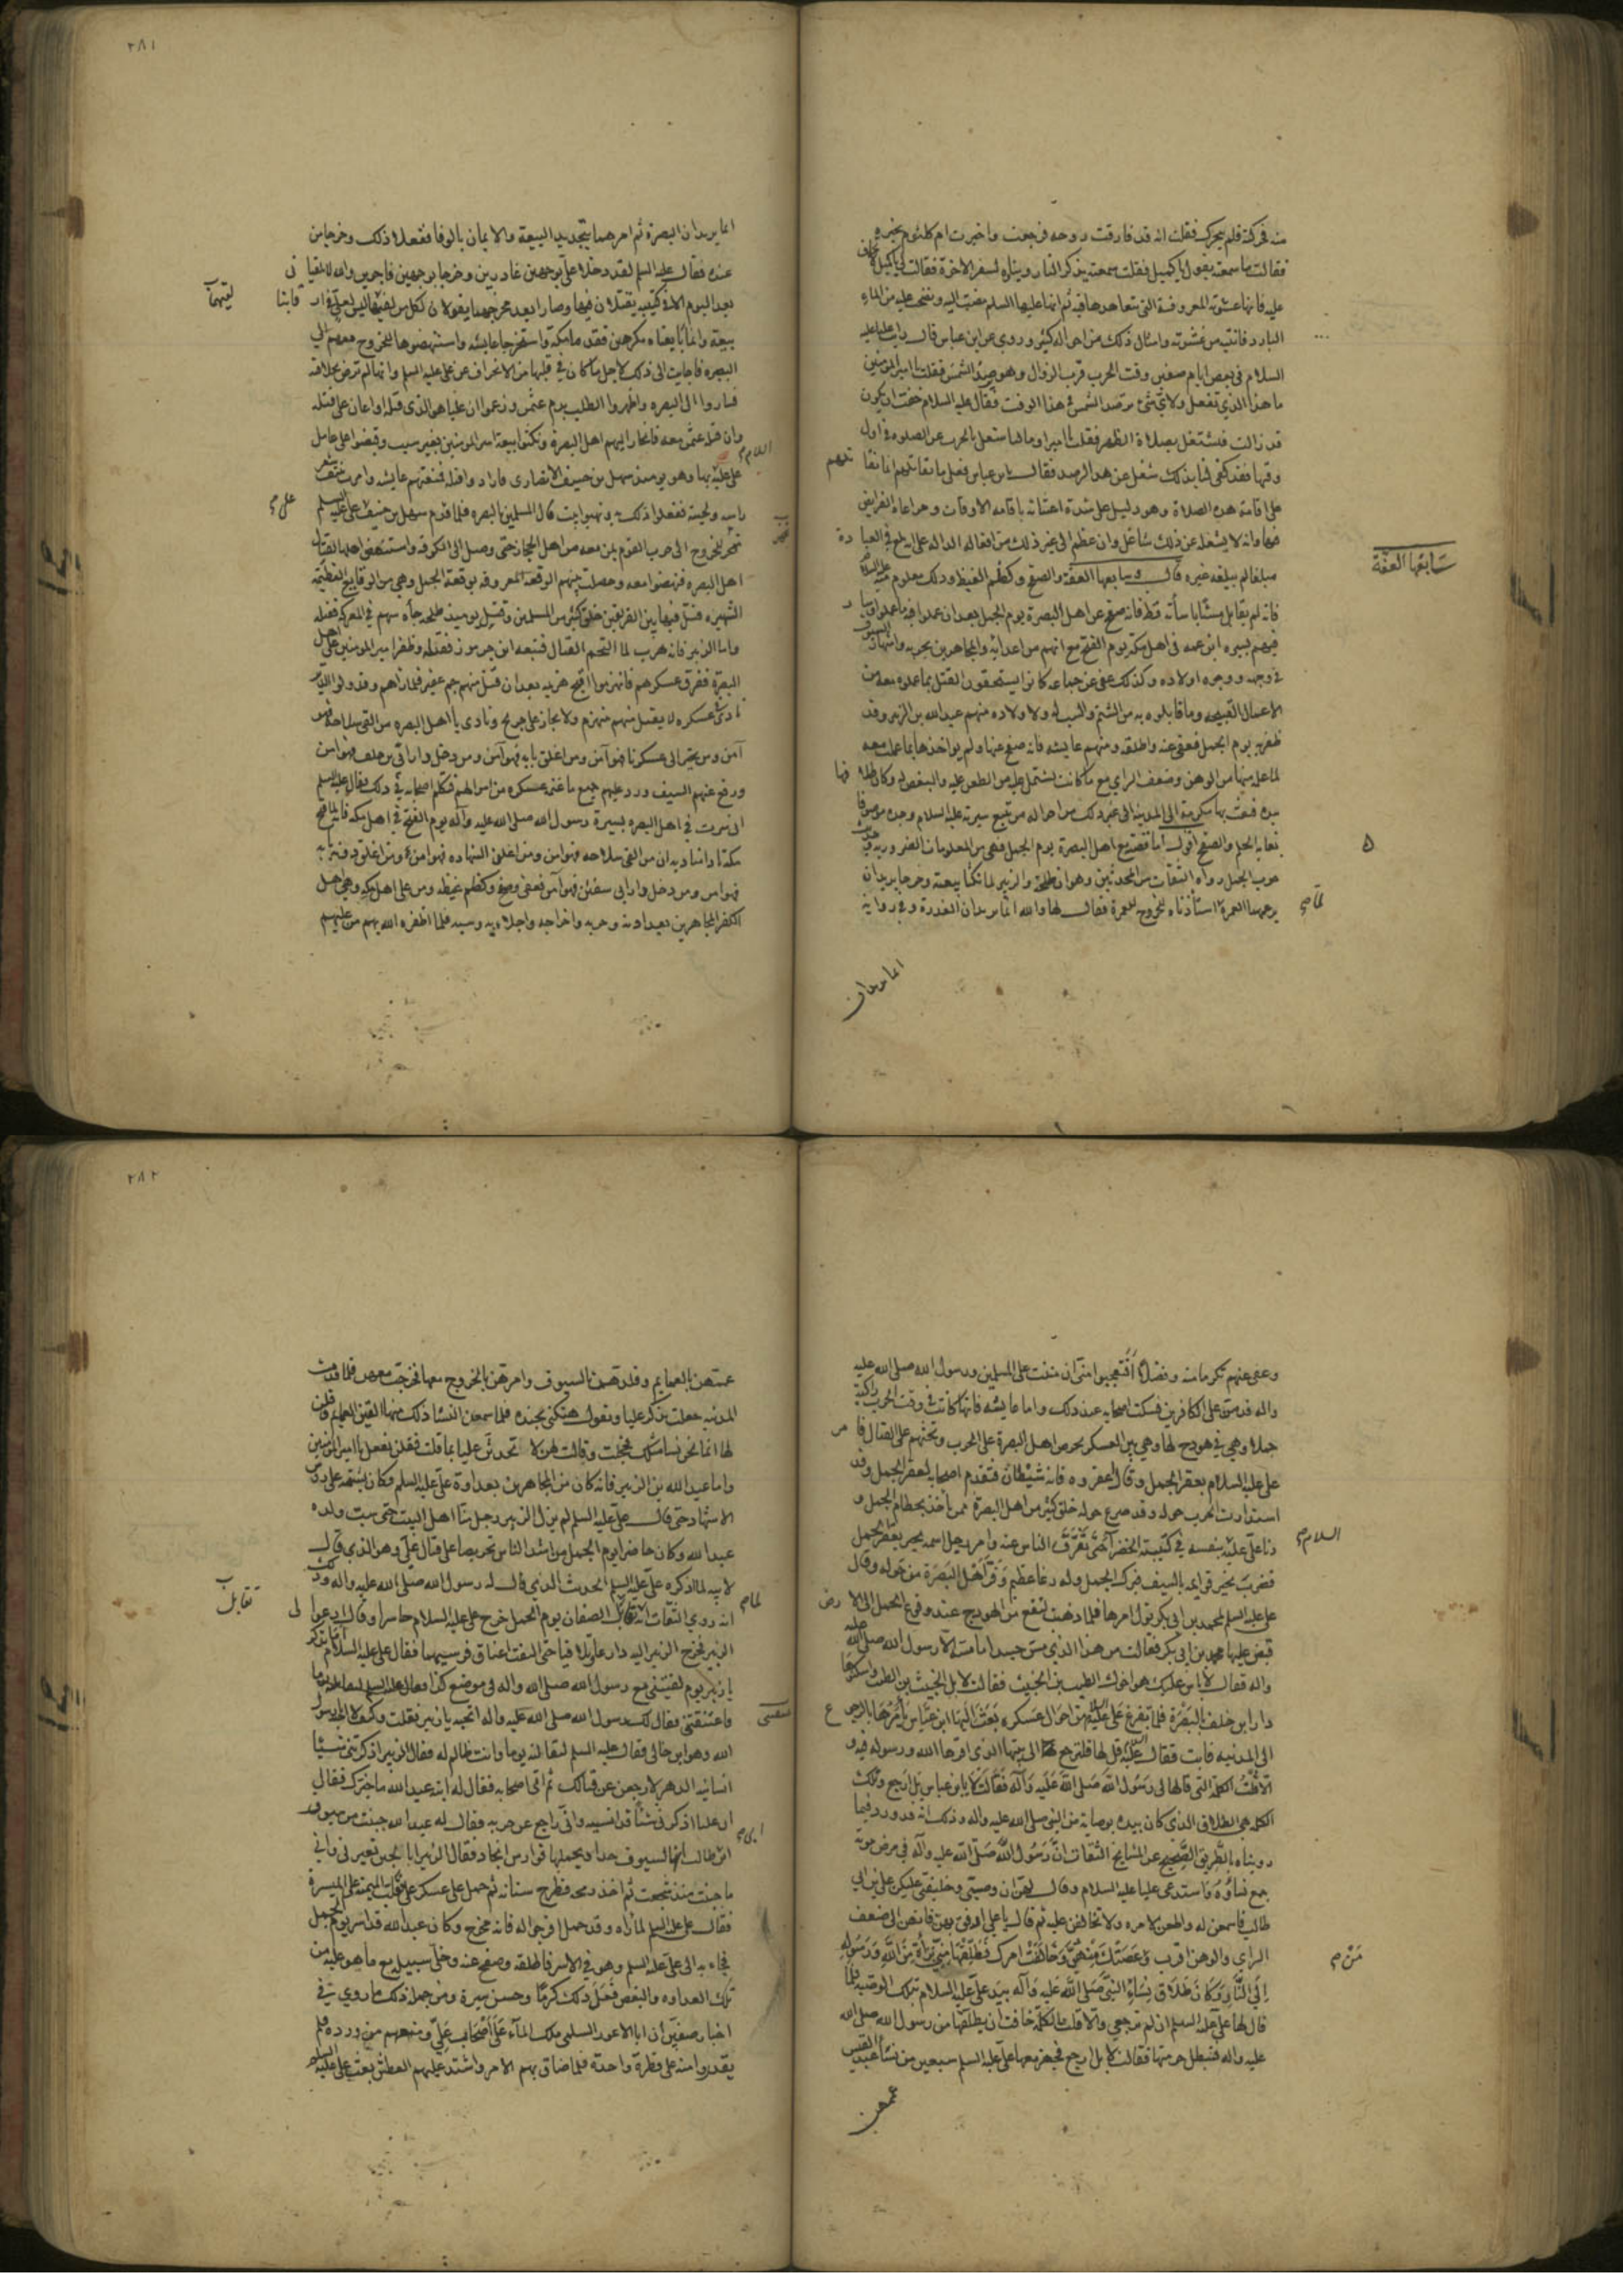 منه فحركته فلم يتحرك فقلت انه قد فارقت روحه فرجعت واخبرت ام كلثوم بخبره
فقالت ما سمعته يقول يا كميل فقلت سمعته يذكر النار وبناره لسفر الاخرة فقالت يا كميل
عليه فانها غشوته المعروفة التي تعاهدها فيه ثم انها عليها السلم مضت اليه ونضحت عليه من الماء
البارد فانتبه من غشوته وامثال ذلك من احواله كثير وروي عن ابن عباس قال رايت عليا عليه
السلام في بعض ايام صفين وقت الحرب قرب الزوال وهو يرصد الشمس فقلت يا امير المومنين
ما هذا الذي تفعل ولاي شيء ترصد الشمس في هذا الوقت فقال عليه السلام خفت ان يكون
قد زالت فنشتغل بصلاة الظهر فقلت يا امير المومنين انا مشتغل بالحرب عن الصلوه في اول
وقتها فقد كفى لنا بذلك شغل عن هذا الرصد فقال يا بن عباس فعلى ما نقاتلهم انما نقاتلهم
على اقامة هذه الصلاة وهو دليل على شدة اعتنائه باقامة الاوقات ومراعاة الفرايض
فيها وانه لا يشغله عن ذلك شاغل وان عظم الى غير ذلك من افعاله الدالة على انه بلغ في العبادة
مبلغا لم يبلغه غيره قال وسابعها العفة والصفح وكظم الغيظ وذلك معلوم منه عليه السلام
سابعها العفة
فانه لم يقابل مسيئا باساته قط فانه صفح عن اهل البصرة يوم الجمل بعد ان عملوا فيه ما عملوا وسار
فيهم بسيرة ابن عمه في اهل مكة يوم الفتح مع انهم من اعدائه والمجاهرين بحربه واشهار السيوف
في وجهه ووجوه اولاده وكذلك عفى عن جماعة كانوا يستحقون القتل بما عملوه معه من
الاعمال القبيحة وما قابلوه به من الشتم والسب له ولاولاده منهم عبد الله بن الزبير وقد
ظفر به يوم الجمل فعفى عنه واطلقه ومنهم عايشه فانه صفح عنها ولم يواخذها بما عملت معه
لما علم منها من الوهن وضعف الراي مع ما كانت تشتمل عليه من الطعن عليه والبغض له وكان
يده فبعث بها مكرمة الى المدينة الى غير ذلك من احواله من تتبع سيرته عليه السلام وجده موصوفا
بغاية الحلم والصفح اقول اما قصته مع اهل البصرة يوم الجمل فهي من المعلومات الضرورية
حرب الجمل رواه الثقات من المحدثين وهو ان طلحة والزبير لما نكثا بيعته وخرجا يريدان
بزعمهما العمرة استاذناه للخروج للعمرة فقال لهما والله انما يريدان الغدرة وفي رواية
انما يريدان
٢٨١
انما يريدان البصرة ثم امرهما بتجديد البيعة والايمان بالوفا ففعلا ذلك وخرجا من
عنده فقال عليه السلم لقد دخلا علي بوجهين غادرين وخرجا بوجهين فاجرين والله لا يلقياني
بعد اليوم الا في كتيبه يقتتلان فيها وصارا بعد خروجهما يقولان لكل من لقيهما ليس لعلي في رقابنا
لقيهما
بيعة وانما بايعناه مكرهين فقدما مكة واستخرجا عايشه واستنهضوها للخروج معهم الى
البصره فاجابت الى ذلك لاجل ما كان في قلبها من الانحراف عن علي عليه السلم وانها لم ترض بخلافته
فساروا الى البصره واظهروا الطلب بدم عثمن وزعموا ان عليا هو الذي قتله او اعان على قتله
وان قتلة عثمن معه فانحاز اليهم اهل البصرة ونكثوا بيعة امير المومنين بغير سبب وقبضوا على عامل
علي عليه بها وهو يومئذ سهل بن حنيف الانصاري فارادوا قتله فمنعتهم عايشه وامرت بنتف شعر
راسه ولحيته ففعلوا ذلك به ونهبوا بيت مال المسلمين بالبصره فلما قدم سهل بن حنيف على علي عليه السلم
تجهز للخروج الى حرب القوم بمن معه من اهل الحجاز حتى وصل الى الكوفه واستنهض اهلها لقتال
اهل البصره فنهضوا معه وحصلت بينهم الوقعة المعروفه بوقعة الجمل وهي من الوقايع العظيمة
الشهيره قتل فيها بين الفريقين خلق كثير من المسلمين وقتل يوميذ طلحه جاءه سهم في المعركه فقتله
واما الزبير فانه هرب لما التحم القتال فتبعه ابن جرموز فقتله وظفر امير المومنين على اهل
البصرة ففرق عسكرهم فانهزموا اقبح هزيمه بعد ان قتل منهم جم غفير فلما راهم وقد ولوا الادبار
نادى في عسكره لا يقتل منهم منهزم ولا يجاز على جريح ونادى يا اهل البصره من القى سلاحه فهو
آمن ومن تحيز الى عسكرنا فهو آمن ومن اغلق بابه فهو آمن ومن دخل دار ابن خلف فهو امن
ورفع عنهم السيف ورد عليهم جميع ما غنم عسكره من اموالهم فتكلم اصحابه في ذلك فقال عليه السلم
اني سرت في اهل البصره بسيرة رسول الله صلى الله عليه وآله يوم الفتح في اهل مكه فانه لما فتح
مكة نادى مناديه ان من القى سلاحه فهو امن ومن اعلن الشهاده فهو امن ومن اغلق عليه بابه
فهو امن ومن دخل دار ابي سفين فهو آمن فعفى وصفح وكظم غيظه ومن على اهل مكه وهي اهل
الكفر المجاهرين بعداوته وحربه واخراجه واجلائه وسبه فلما اظفره الله بهم من عليهم
وعفى عنهم تكرما منه وفضلا أفتعجبوا مني ان مننت على المسلمين ورسول الله صلى الله عليه
واله قد من على الكافرين فسكت اصحابه عند ذلك واما عايشه فانها كانت في وقت الحرب راكبة
جملا وهي في هودج لها وهي بين العسكر تحرض اهل البصرة على الحرب وتحثهم على القتال فامر
علي عليه السلام بعقر الجمل وقال اعقروه فانه شيطان فتقدم اصحابه لعقر الجمل وقد
استدارت الحرب حوله وقد صرع حوله خلق كثير من اهل البصرة ممن ياخذ بخطام الجمل و
دنا علي عليه بنفسه في كتيبته الخضرا حتى تفرق الناس عنه وامر رجل اسمه بجير بعقر الجمل
السلام
فضرب بجير قوايمه بالسيف فبرك الجمل وله رغا عظيم وفر اهل البصرة من حوله وقال
علي عليه السلم لمحمد بن ابي بكر تول امرها فلما ذهبت لتقع من الهودج عند وقوع الجمل الى الارض
قبض عليها محمد بن ابي بكر فقالت من هذا الذي مس جسدا ما مسه الا رسول الله صلى الله عليه
واله فقال لا باس عليك هو اخوك الطيب بن الخبيث فقالت لا بل الخبيث بن الطيب واسكنوها
دار ابن خلف بالبصرة فلما تفرغ علي عليه من احوال عسكره بعث اليها ابن عباس يأمرها بالرجوع
الى المدينه فابت فقال علي عليه قل لها فلترجع الى بيتها الذي اقرها الله ورسوله فيه و
الا قلت الكلمة التي قالها لي رسول الله صلى الله عليه وآله فقالت يا بن عباس بل ارجع وتلك
الكلمة هي الطلاق الذي كان بيده بوصاية من النبي صلى الله عليه واله وذلك انه قد ورد فيما
رويناه بالطريق الصحيح عن المشايخ الثقات ان رسول الله صلى الله عليه وآله في مرض موته
جمع نساؤه واستدعى عليا عليه السلام وقال لهن ان وصيي وخليفتي عليكن علي بن ابي
طالب فاسمعن له واطعن لامره ولا تخالفن عليه ثم قال يا علي ارفق بهن فانهن الى ضعف
الراي والوهن اقرب ومن عصتك منهن وخالفت امرك فطلقها مني تبرأة من الله ورسوله
من م
الي النار وكان طلاق نساء النبي صلى الله عليه وآله بيد علي عليه السلام بتلك الوصيه فلما
قال لها علي عليه السلم ان لم ترجعي والا قلت الكلمة خافت ان يطلقها من رسول الله صلى الله
عليه واله فتبطل حرمتها فقالت لا بل ارجع فجهز معها علي عليه السلم سبعين من نساء عبد القيس
عممهن
٢٨٢
عمتهن بالعمايم وقلدتهن بالسيوف وامرهن بالخروج معها فخرجت معهن فلما قدمت
المدينه جعلت تذكر عليا وتقول هتكني بجنده فلما سمعن النساء ذلك منها القين العمايم وقلن
لها انما نحن نساء مثلك فخجلت وقالت لهن لا تحدثن عليا بما قلت فقلن نفعل يا ام المومنين
واما عبد الله بن الزبير فانه كان من المجاهرين بعداوة علي عليه السلم وكان يشتمه على رؤس
الاشهاد حتى قال علي عليه السلم لم يزل الزبير رجل منا اهل البيت حتى شب ولده
عبد الله وكان حاضرا يوم الجمل من اشد الناس تحريصا على قتال علي وهو الذي قال
لابيه لما ذكره علي عليه السلم الحديث الذي قاله له رسول الله صلى الله عليه واله وذلك
انه روي الثقات انه لما تقابل الصفان يوم الجمل خرج علي عليه السلام حاسرا وقال ادعوا لي
تقابل
الزبير فخرج الزبير اليه دارعا حتى التفت اعناق فرسيهما فقال علي عليه السلام اما تذكر
يا زبير يوم لقيتني مع رسول الله صلى الله واله في موضع كذا
واعتنقتني فقال لك رسول الله صلى الله عليه واله اتحبه يا زبير فقلت وكيف لا احبه يا رسول
الله وهو ابن خالي فقال عليه السلم لتقاتلنه يوما وانت ظالم له فقال الزبير اذكرتني شيئا
انسانيه الدهر لارجعن عن قتالك ثم اتى اصحابه فقال له ابنه عبد الله ما خبرك فقال
ان عليا اذكرني شيئا قد انسيه واني راجع عن حربه فقال له عبد الله جبنت من سيوف
ابن طالب انها لسيوف حداد يحملها فوارس انجاد فقال الزبير ابالجبن تعيرني واني
ما جبنت منذ شجعت ثم اخذ رمحه فطرح سنانه ثم حمل على عسكر علي فقلب الميمنة على الميسرة
فقال علي عليه السلم لما راه وقد حمل افرجوا له فانه محرج وكان عبد الله قد اسر يوم الجمل
فجاء به الى علي عليه السلم وهو في الاسر فاطلقه وصفح عنه وخلى سبيله مع ما هو عليه من
تلك العداوه والبغض فعل ذلك كرما وحسن سيرة ومن جملة ذلك ما روي في
اخبار صفين ان ابا الاعور السلمي ملك الماء على اصحاب علي ومنعهم من وروده فلم
يقدروا منه على قطرة واحدة فلما ضاق بهم الامر واشتد عليهم العطش بعث علي عليه السلم